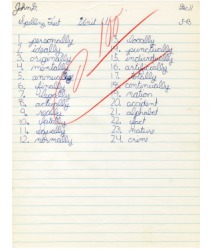 John B.
Spelling Test Unit
1. personally
2. ideally
3. originally
4. mentally
5. annually
6. finally
7. legally
8. actually
9. really
10.
11. equally
12. normally
100
13. vocally
14. punctually
15. individually
16. artificially
17. totally
18. continually
19. nation
20. accident
21. alphabet
22. vact
23. mature
24. crime